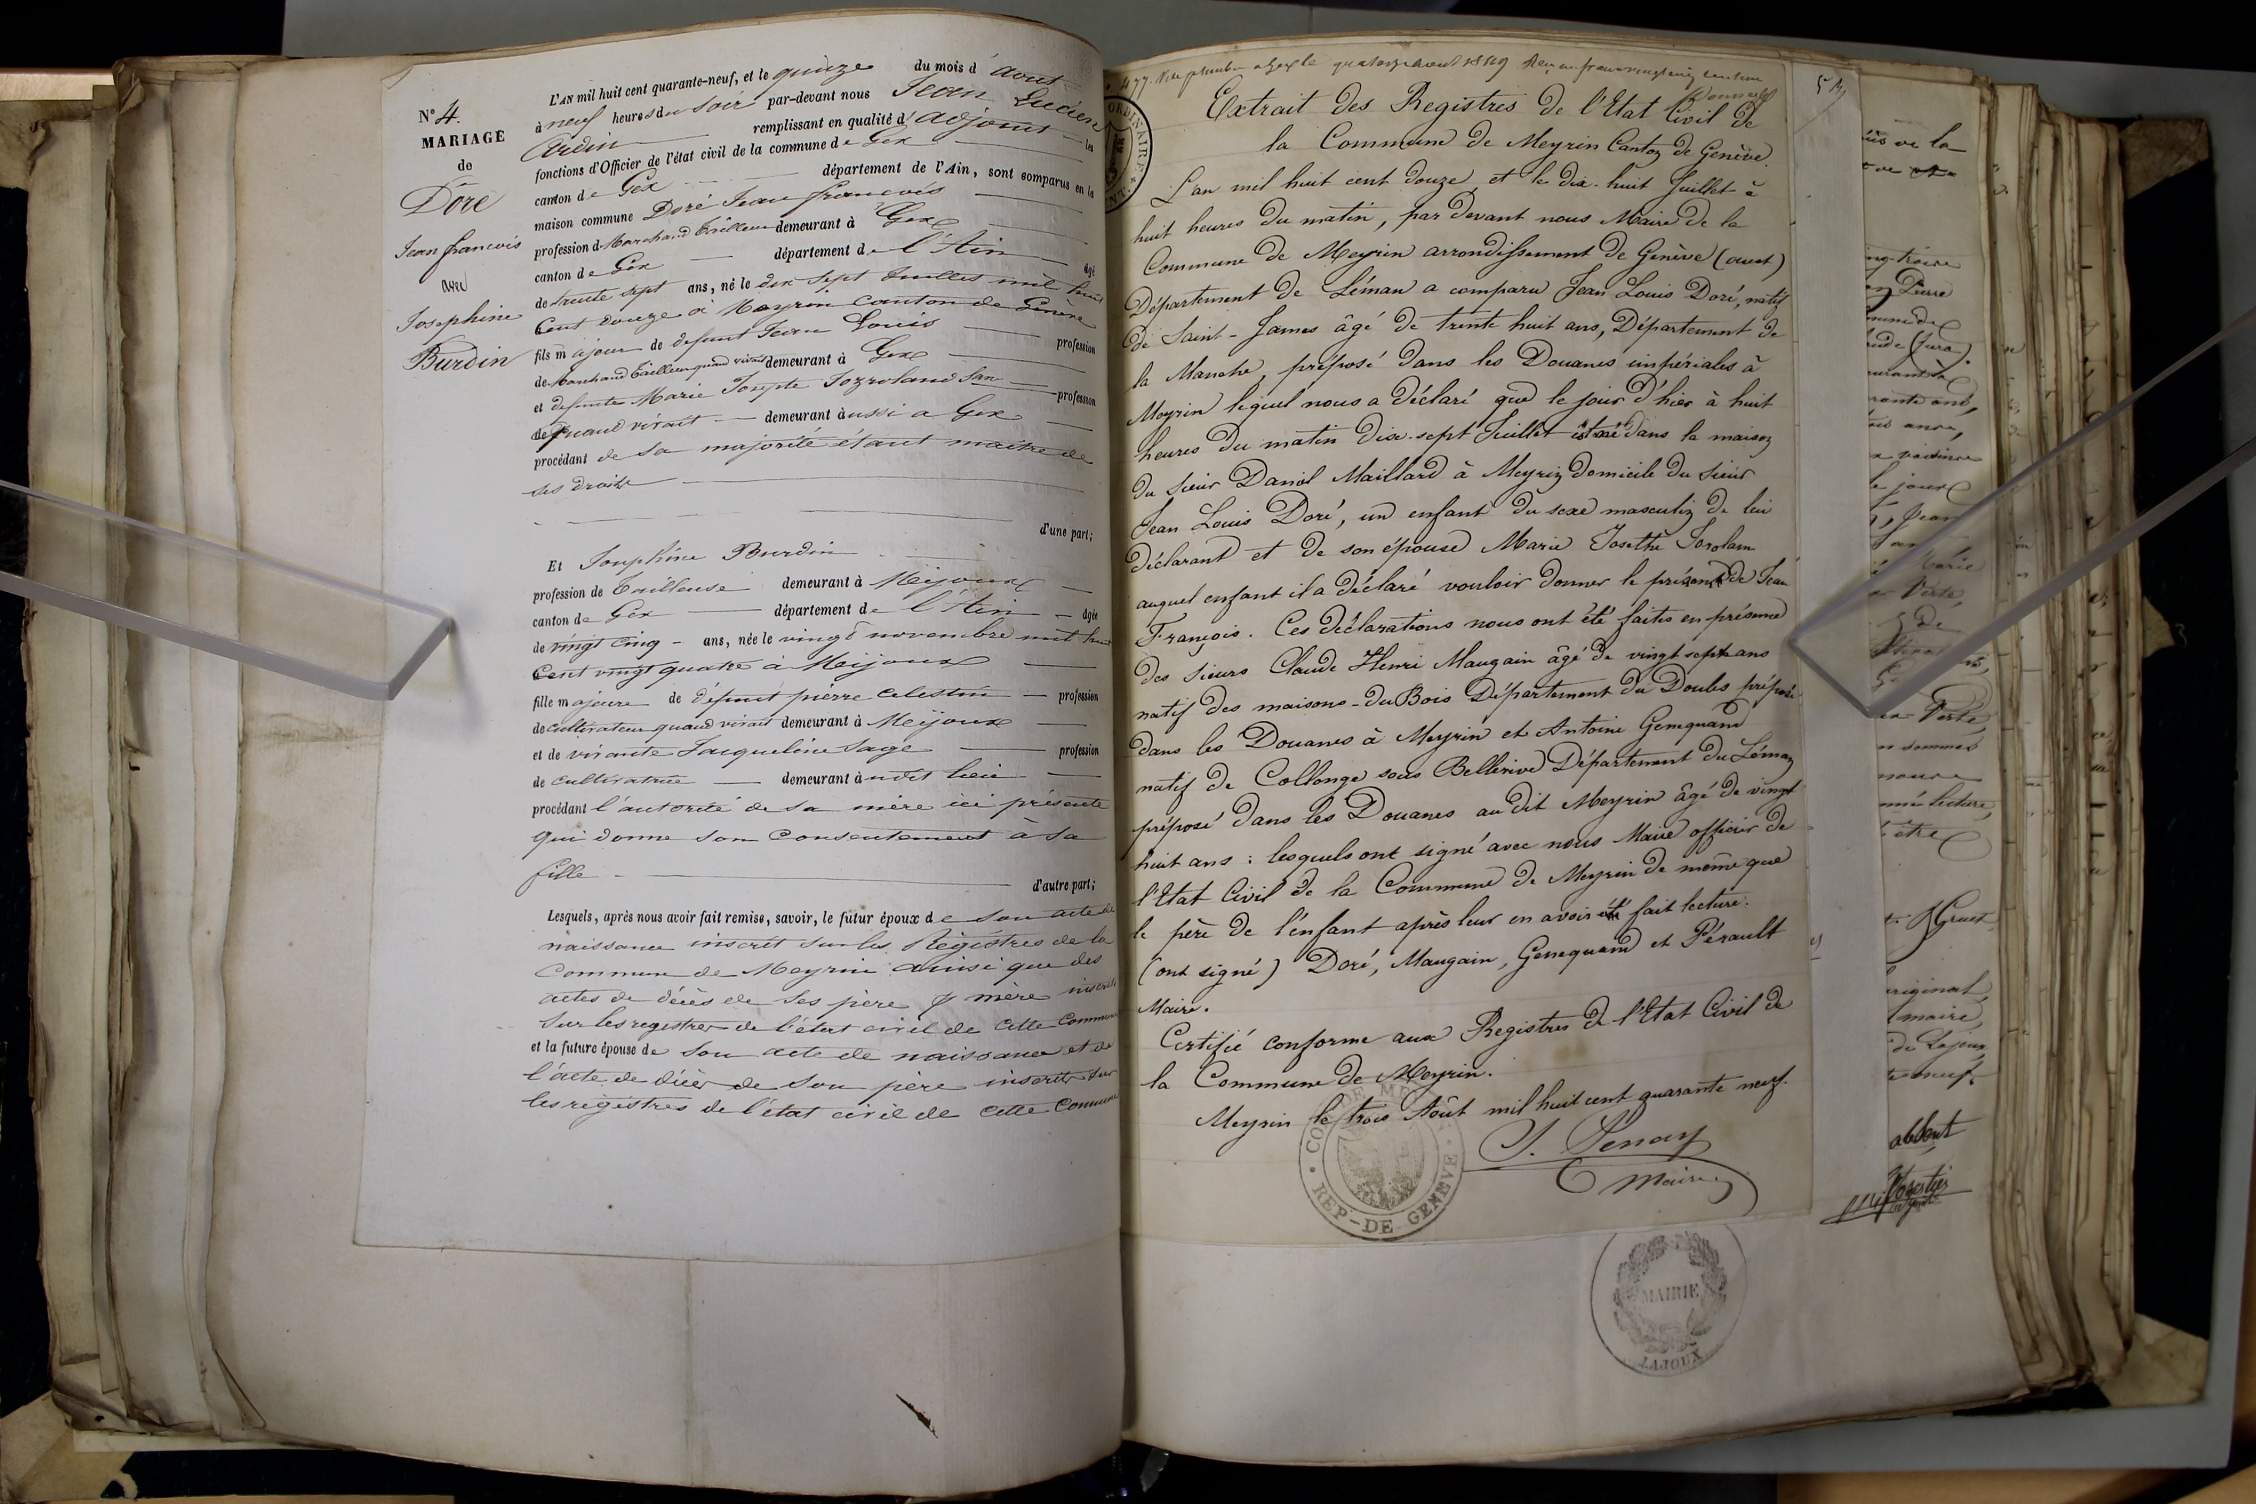 N° 4.
MARIAGE
de
Doré
Jean francois
avec
Josephine
Burdin
L'AN mil huit cent quarante-neuf, et le quinze du mois d'aout
à neuf heures du soir par-devant nous Jean Lucien
remplissant en qualité d'adjoint les
fonctions d'Officier de l'état civil de la commune de Gex
canton de Gex département de l'Ain, sont comparus en la
maison commune Doré Jean francois
profession de Marchand Tailleur demeurant à Gex
canton de Gex département de l'Ain âgé
de trente sept ans, né le dix sept Juillet mil huit
cent douze à Meyrin canton de Genève
fils majeur de defunt Jean Louis profession
de Marchand Tailleur quand vivait demeurant à Gex
et defunte Marie profession
de quand vivait demeurant à aussi a Gex
procédant de sa majorité étant maitre de
ses droits
d'une part;
Et Josephine Burdin
profession de Tailleuse demeurant à Mijoux
canton de Gex département de l'Ain âgée
de vingt cinq ans, née le vingt novembre mil huit
cent vingt quatre à Mijoux
fille majeure de défunt pierre celestin profession
de cultivateur quand vivait demeurant à Mijoux
et de vivante Jacqueline Sage profession
de cultivatrice demeurant à udit lieu
procédant l'autorité de sa mère ici présente
qui donne son consentement à sa
fille
d'autre part;
Lesquels, après nous avoir fait remise, savoir, le futur époux de son acte de
naissance inscrit sur les Régistres de la
Commune de Meyrin ainsi que des
actes de décès de ses père & mère inscrits
sur les registres de l'état civil de cette commune
et la future épouse de son acte de naissance et de
l'acte de décès de son père inscrits sur
les régistres de l'état civil de cette commune
477.
quatorze aout 1849
ORDINAIRE
Extrait des Registres de l'Etat Civil de
la Commune de Meyrin Canton de Genève.
L'an mil huit cent douze, et le dix-huit Juillet à
huit heures du matin, par devant nous Maire de la
Commune de Meyrin arrondissement de Genève (ouest)
Département de Léman a comparu Jean Louis Doré, natif
de Saint-James âgé de trente huit ans, Département de
la Manche, préposé dans les Douanes impériales à
Meyrin lequel nous a déclaré que le jour d'hier à huit
heures du matin dix-sept Juillet est né dans la maison
du sieur Daniel Maillard à Meyrin domicile du sieur
Jean Louis Doré, un enfant du sexe masculin de lui
déclarant et de son épouse Marie Josethe
auquel enfant il a déclaré vouloir donner le prénom de Jean
François. Ces déclarations nous ont été faites en présence
des sieurs Claude Henri Maugain âgé de vingt sept ans
natif des maisons-du Bois Département du Doubs préposé
dans les Douanes à Meyrin et Antoine Genequand
natif de Collonge sous Bellerive Département du Léman
préposé dans les Douanes au dit Meyrin âgé de vingt
huit ans : lesquels ont signé avec nous Maire officier de
l'Etat Civil de la Commune de Meyrin de même que
le père de l'enfant après leur en avoir été fait lecture.
(ont signé) Doré, Maugain, Genequand et Pérault
Maire.
Certifié conforme aux Registres de l'Etat Civil de
la Commune de Meyrin.
Meyrin le trois Août mil huit cent quarante neuf.
Maire
REP-DE GENEVE
MAIRIE
LAJOUX
Pierre
(Jura).
Marie
Verte,
lecture,
original
maire,
de Lajoux
absent